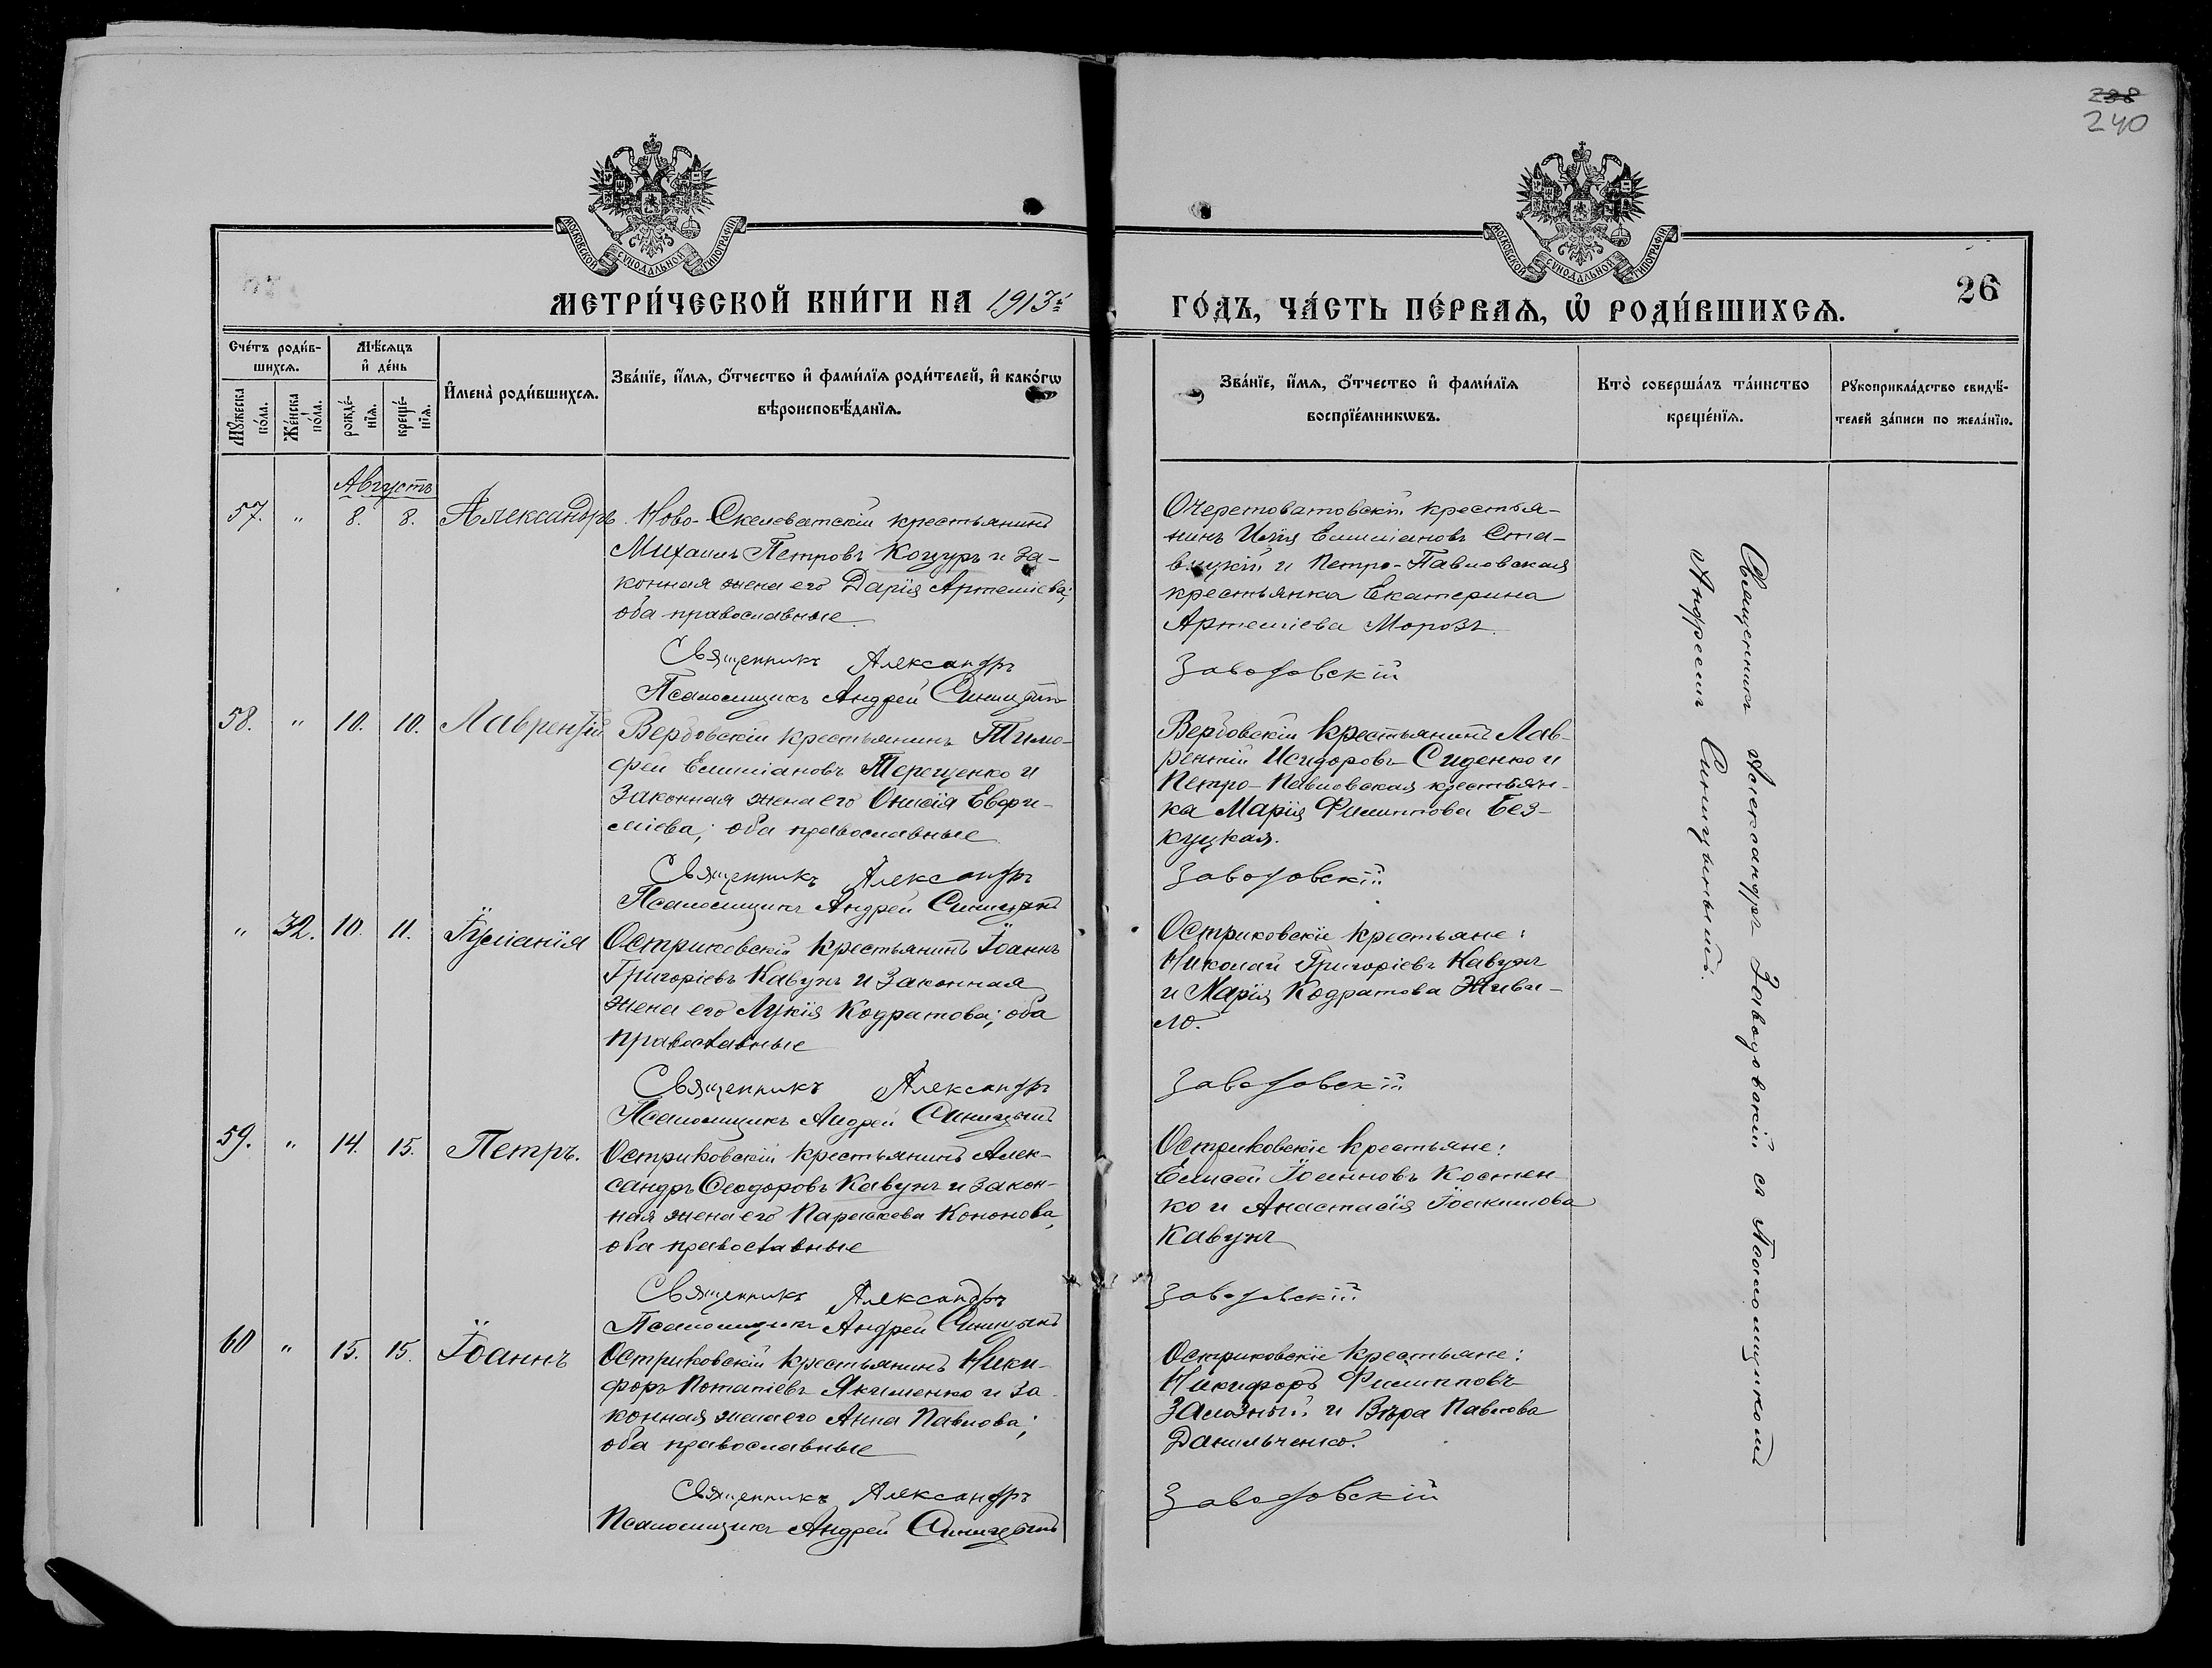 238
240
МОСКОВСКОЙ СУНОДАЛЬНОЙ ТИПОГРАФІИ
МОСКОВСКОЙ СУНОДАЛЬНОЙ ТИПОГРАФІИ
МЕТРИ́ЧЕСКОЙ КНИ́ГИ НА 1913й
ГО́ДЪ, ЧА́СТЬ ПЕ́РВАЯ, Ѡ РОДИ́ВШИХСЯ.
26
Сче́тъ роди́в-
шихсѧ.
Мѣ́сѧцъ
и҆ де́нь
Мꙋ́жеска
по́ла.
Же́нска
по́ла.
рожде́-
нїѧ.
креще́-
нїѧ.
И҆мена̀ роди́вшихсѧ.
Зва́нїе, и҆́мѧ, ѻ҆́тчество и҆ фами́лїѧ роди́телей, и҆ како́гѡ
вѣроисповѣ́данїѧ.
Зва́нїе, и҆́мѧ, ѻ҆́тчество и҆ фами́лїѧ
воспрїе́мникѡвъ.
Кто̀ соверша́лъ та́инство
креще́нїѧ.
Рꙋкоприкла́дство свидѣ́-
телей за́писи по жела́нїю.
Августъ
57. " 8. 8. Александръ
Ново-Скелеватскій крестьянинъ
Михаилъ Петровъ Коцуръ и за-
конная жена его Дарія Артеміева;
оба православные
Священникъ Александръ
Псаломщикъ Андрей Синицынъ
Очеретоватовскій крестья-
нинъ Илія Емиліановъ Ста-
вицкій и Петро-Павловская
крестьянка Екатерина
Артеміева Морозъ.
Заводовскій
58. " 10. 10. Лаврентій
Вербовскій крестьянинъ Тимо-
фей Емиліановъ Терещенко и
законная жена его Онисія Евфи-
міева; оба православные
Священникъ Александръ
Псаломщикъ Андрей Синицынъ
Вербовскій крестьянинъ Лав-
рентій Исидоровъ Сиденко и
Петро-Павловская крестьян-
ка Марія Филиппова Без-
куцкая.
Заводовскій
" 32. 10. 11. Іуліанія
Остриковскій крестьянинъ Іоаннъ
Григоріевъ Кавунъ и законная
жена его Лукія Кодратова; оба
православные
Священникъ Александръ
Псаломщикъ Андрей Синицынъ
Остриковскіе крестьяне:
Николай Григоріевъ Кавунъ
и Марія Кодратова Живи-
ло.
Заводовскій
59. " 14. 15. Петръ.
Остриковскій крестьянинъ Алек-
сандръ Ѳеодоровъ Кавунъ и закон-
ная жена его Параскева Кононова,
оба православные
Священникъ Александръ
Псаломщикъ Андрей Синицынъ
Остриковскіе крестьяне:
Елисей Іоанновъ Костен-
ко и Анастасія Іоакимова
Кавунъ
Заводовскій
60 " 15. 15. Іоаннъ
Остриковскій крестьянинъ Ники-
форъ Потапіевъ Якименко и за-
конная жена его Анна Павлова;
оба православные
Священникъ Александръ
Псаломщикъ Андрей Синицынъ
Остриковскіе крестьяне:
Никифоръ Филипповъ
Залозный и Вѣра Павлова
Данильченко.
Заводовскій
Священникъ Александръ Заводовскій съ Псаломщикомъ
Андреемъ Синицынымъ.